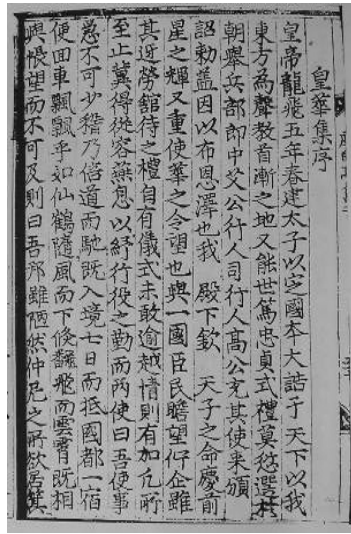 皇華集序
皇帝龍飛五年春建太子以定國本大誥于 天下以我
東方為聲教首漸之地又能世篤忠貞式禮莫愆選於
朝舉兵部郎中艾公行人司行人高公充其使来頒
詔勑盖因以布恩澤也我 殿下欽 天子之命慶前
星之輝又重使華之令望也與一國臣民瞻望仰企雖
其近勞舘待之禮自有儀式未敢逾越情則有加凡所
至止冀得從容燕息以紓行役之勤而两使曰吾使事
急不可少稽乃倍道而馳既入境七日而抵國都一宿
便回車飄飄乎如仙鶴隨風而下倐飜飛而雲霄既相
與悵望而不可及則曰吾邦雖陋然仲尼之所欲居箕